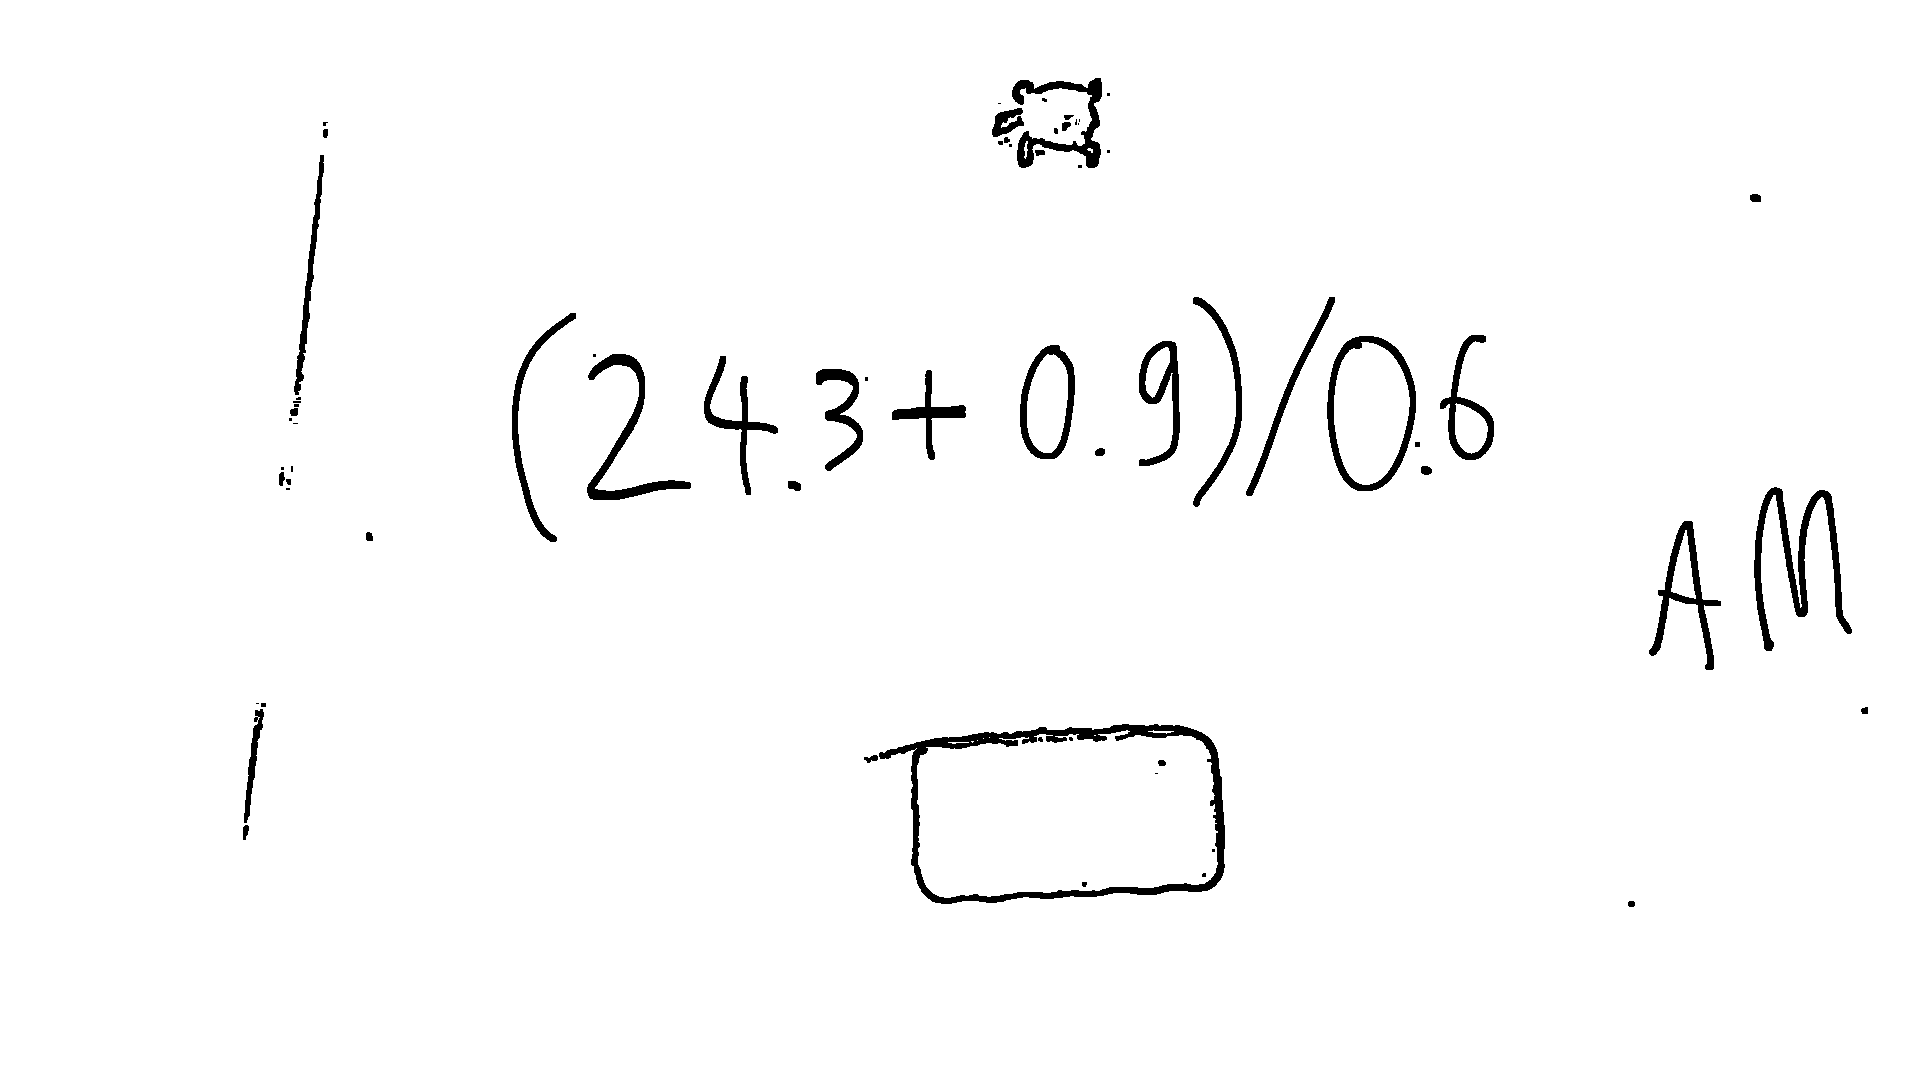 (24.3+0.9)/0.6
AM